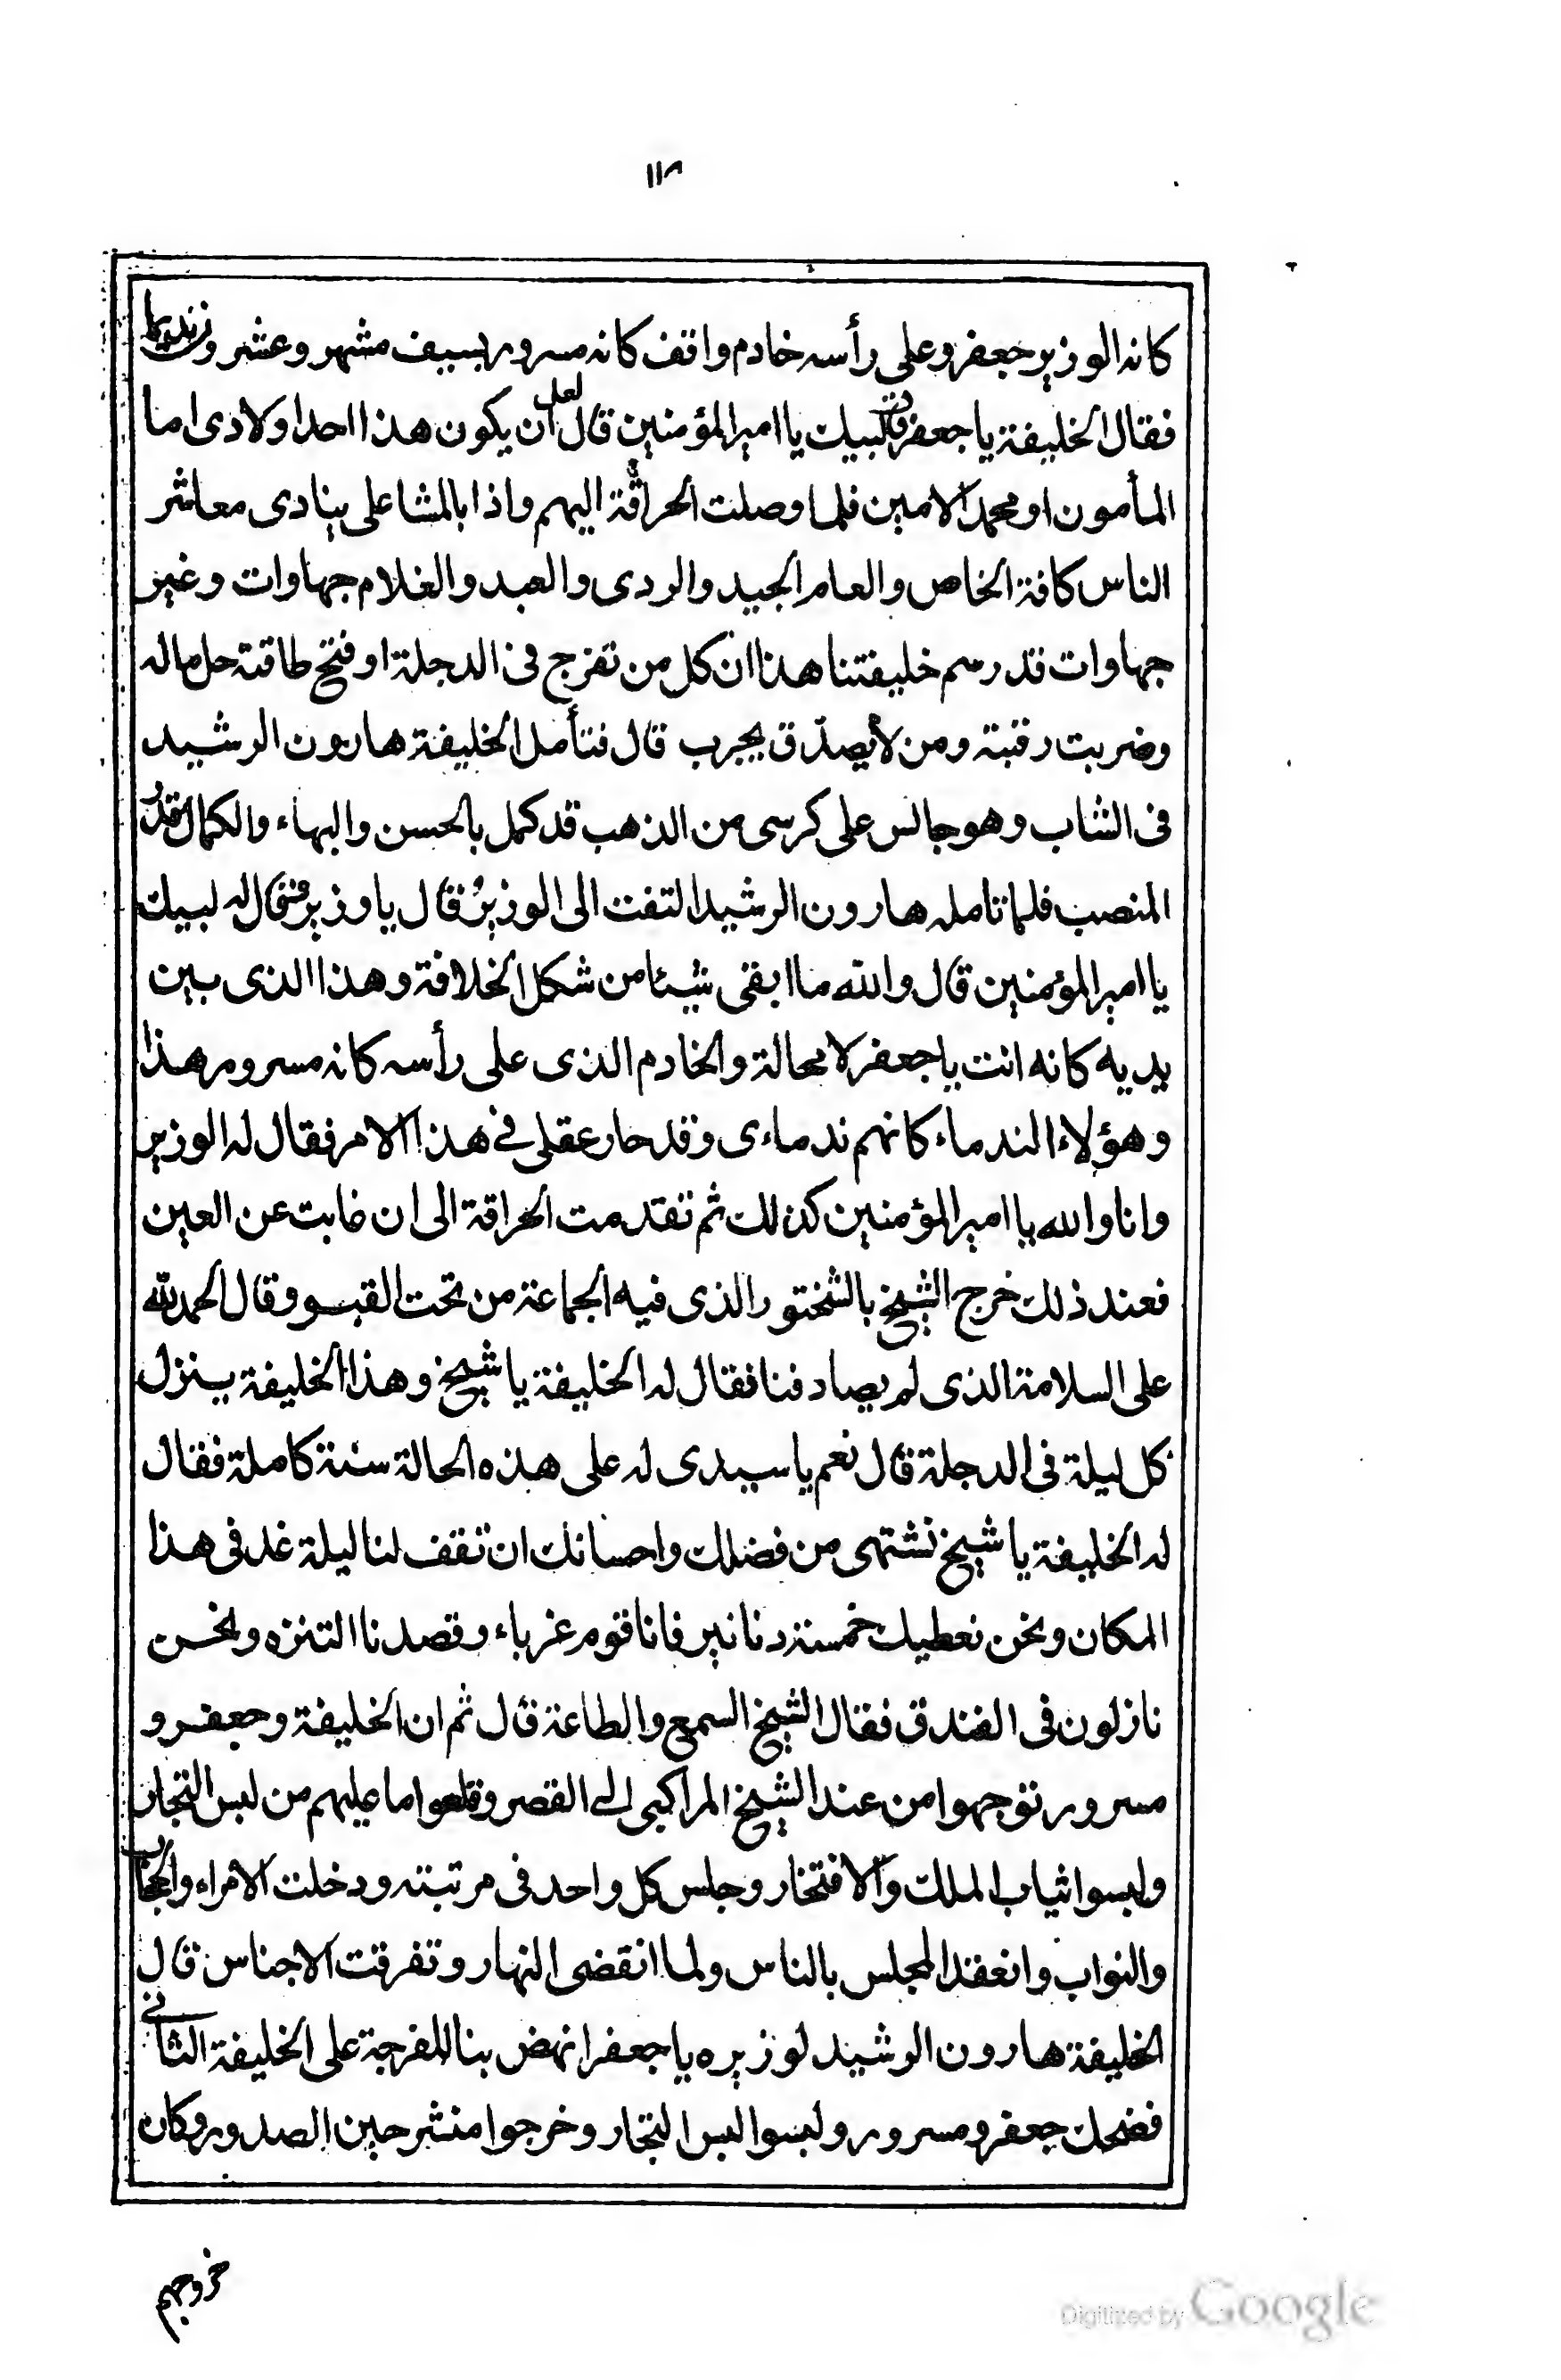 ١١٣
كانه الوزير جعفر وعلى رأسه خادم واقف كانه مسرور بسيف مشهر وعشرون نديما
فقال الخليفة يا جعفر قال لبيك يا امير المؤمنين قال لعل ان يكون هذا احد اولادى اما
المأمون او محمد الامين فلما وصلت الحراقة اليهم واذا بالمشاعلى ينادى معاشر
الناس كافة الخاص والعام الجيد والردى والعبد والغلام جهاوات وغير
جهاوات قد رسم خليفتنا هذا ان كل من تفرج فى الدجلة او فتح طاقته حل ماله
وضربت رقبته ومن لا يصدّق يجرب قال فتأمل الخليفة هارون الرشيد
فى الشاب وهو جالس على كرسى من الذهب قد كمل بالحسن والبهاء والكمال وقدر
المنصب فلما تامله هارون الرشيد التفت الى الوزير وقال يا وزير فقال له لبيك
يا امير المؤمنين قال والله ما ابقى شيئا من شكل الخلافة وهذا الذى بين
يديه كانه انت يا جعفر لا محالة والخادم الذى على رأسه كانه مسرور هذا
وهؤلاء الندماء كانهم ندماءى وقد حار عقلى في هذا الامر فقال له الوزير
وانا والله يا امير المؤمنين كذلك ثم تقدمت الحراقة الى ان غابت عن العين
فعند ذلك خرج الشيخ بالشختور الذى فيه الجماعة من تحت القبو وقال الحمد لله
على السلامة الذى لم يصادفنا فقال له الخليفة يا شيخ وهذا الخليفة ينزل
كل ليلة فى الدجلة قال نعم يا سيدى له على هذه الحالة سنة كاملة فقال
له الخليفة يا شيخ نشتهى من فضلك واحسانك ان تقف لنا ليلة غد فى هذا
المكان ونحن نعطيك خمسة دنانير فانا قوم غرباء وقصدنا التنزه ونحن
نازلون فى الفندق فقال الشيخ السمع والطاعة قال ثم ان الخليفة وجعفر و
مسرور توجهوا من عند الشيخ المراكبى الى القصر وقلعوا ما عليهم من لبس التجار
ولبسوا ثياب الملك والافتخار وجلس كل واحد فى مرتبته ودخلت الامراء والحجاب
والنواب وانعقد المجلس بالناس ولما انقضى النهار وتفرقت الاجناس قال
الخليفة هارون الرشيد لوزيره يا جعفر انهض بنا للفرجة على الخليفة الثانى
فضحك جعفر ومسرور ولبسوا لبس التجار وخرجوا منشرحين الصدور وكان
خروجهم
Digitized by Google